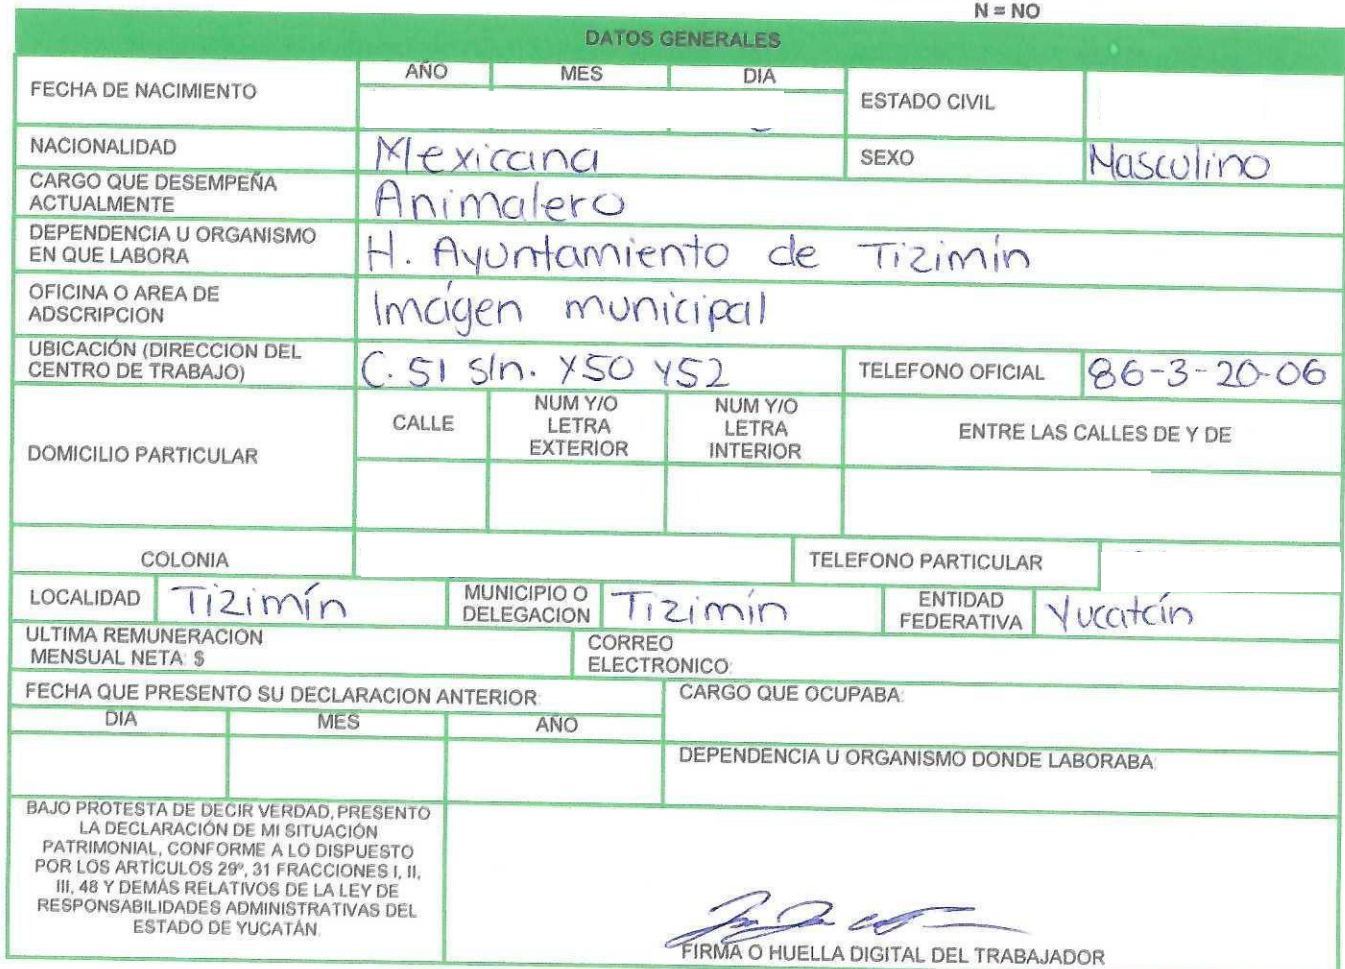 N = NO
DATOS GENERALES
FECHA DE NACIMIENTO
AÑO MES DIA
ESTADO CIVIL
NACIONALIDAD Mexicana SEXO Masculino
CARGO QUE DESEMPEÑA
ACTUALMENTE
Animalero
DEPENDENCIA U ORGANISMO
EN QUE LABORA
H. Ayuntamiento de Tizimín
OFICINA O AREA DE
ADSCRIPCION
Imágen municipal
UBICACIÓN (DIRECCION DEL
CENTRO DE TRABAJO)
C. 51 s/n. x50 y52 TELEFONO OFICIAL 86-3-20-06
DOMICILIO PARTICULAR
CALLE
NUM Y/O
LETRA
EXTERIOR
NUM Y/O
LETRA
INTERIOR
ENTRE LAS CALLES DE Y DE
COLONIA TELEFONO PARTICULAR
LOCALIDAD Tizimín
MUNICIPIO O
DELEGACION
Tizimín
ENTIDAD
FEDERATIVA
Yucatán
ULTIMA REMUNERACION
MENSUAL NETA: $
CORREO
ELECTRONICO:
FECHA QUE PRESENTO SU DECLARACION ANTERIOR:
CARGO QUE OCUPABA:
DIA MES AÑO
DEPENDENCIA U ORGANISMO DONDE LABORABA:
BAJO PROTESTA DE DECIR VERDAD, PRESENTO
LA DECLARACIÓN DE MI SITUACIÓN
PATRIMONIAL, CONFORME A LO DISPUESTO
POR LOS ARTÍCULOS 29º, 31 FRACCIONES I, II,
III, 48 Y DEMÁS RELATIVOS DE LA LEY DE
RESPONSABILIDADES ADMINISTRATIVAS DEL
ESTADO DE YUCATÁN.
FIRMA O HUELLA DIGITAL DEL TRABAJADOR